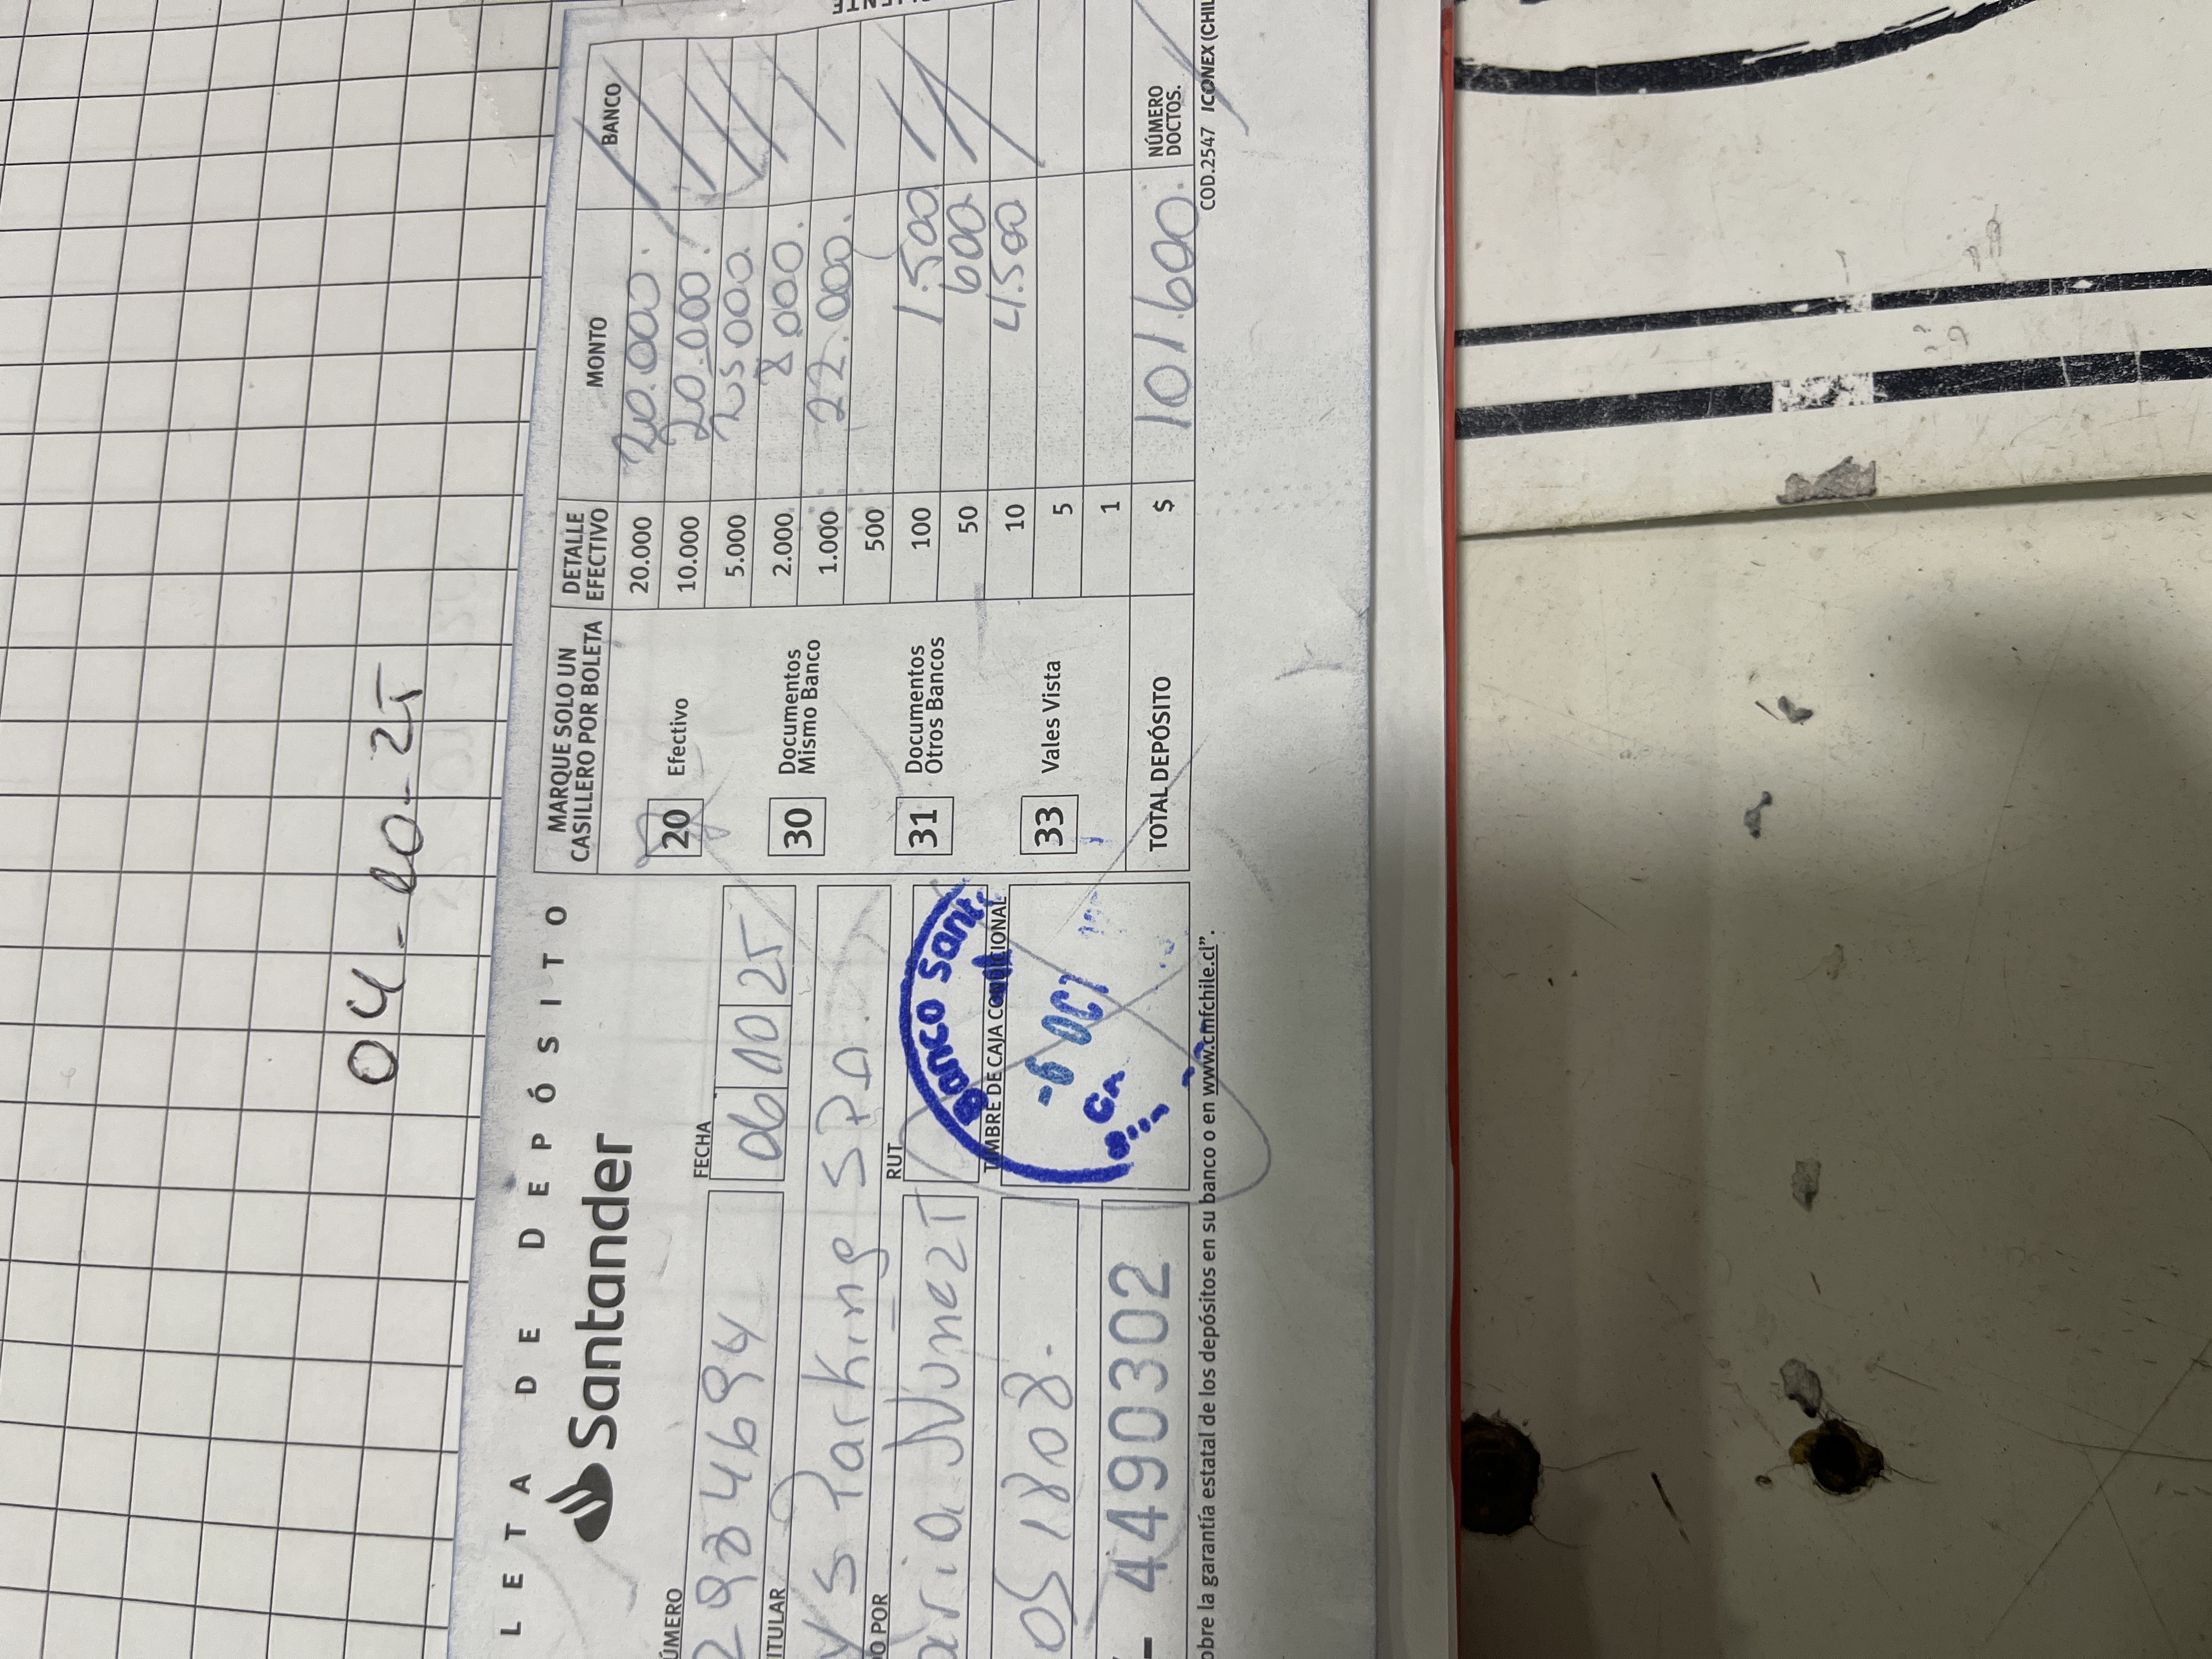 04-10-25
LETA DE DEPÓSITO
Santander
FECHA
06 10 25
ÚMERO
2984694
ITULAR
y S Parking SPA.
DO POR
RUT
aria Nunez T
Banco Sant
TIMBRE DE CAJA CONDICIONAL
-6 OCT
051808.
- 4490302
obre la garantía estatal de los depósitos en su banco o en www.cmfchile.cl".
MARQUE SOLO UN
CASILLERO POR BOLETA
20 Efectivo
30 Documentos
Mismo Banco
31 Documentos
Otros Bancos
33 Vales Vista
DETALLE
EFECTIVO MONTO BANCO
20.000 20.000.
10.000 20.000.
5.000 25000
2.000 8.000.
1.000 22.000.
500
100 1.500
50 600
10 4.500
5
1
TOTAL DEPÓSITO $ 101.600. NÚMERO
DOCTOS.
COD.2547 ICONEX (CHIL